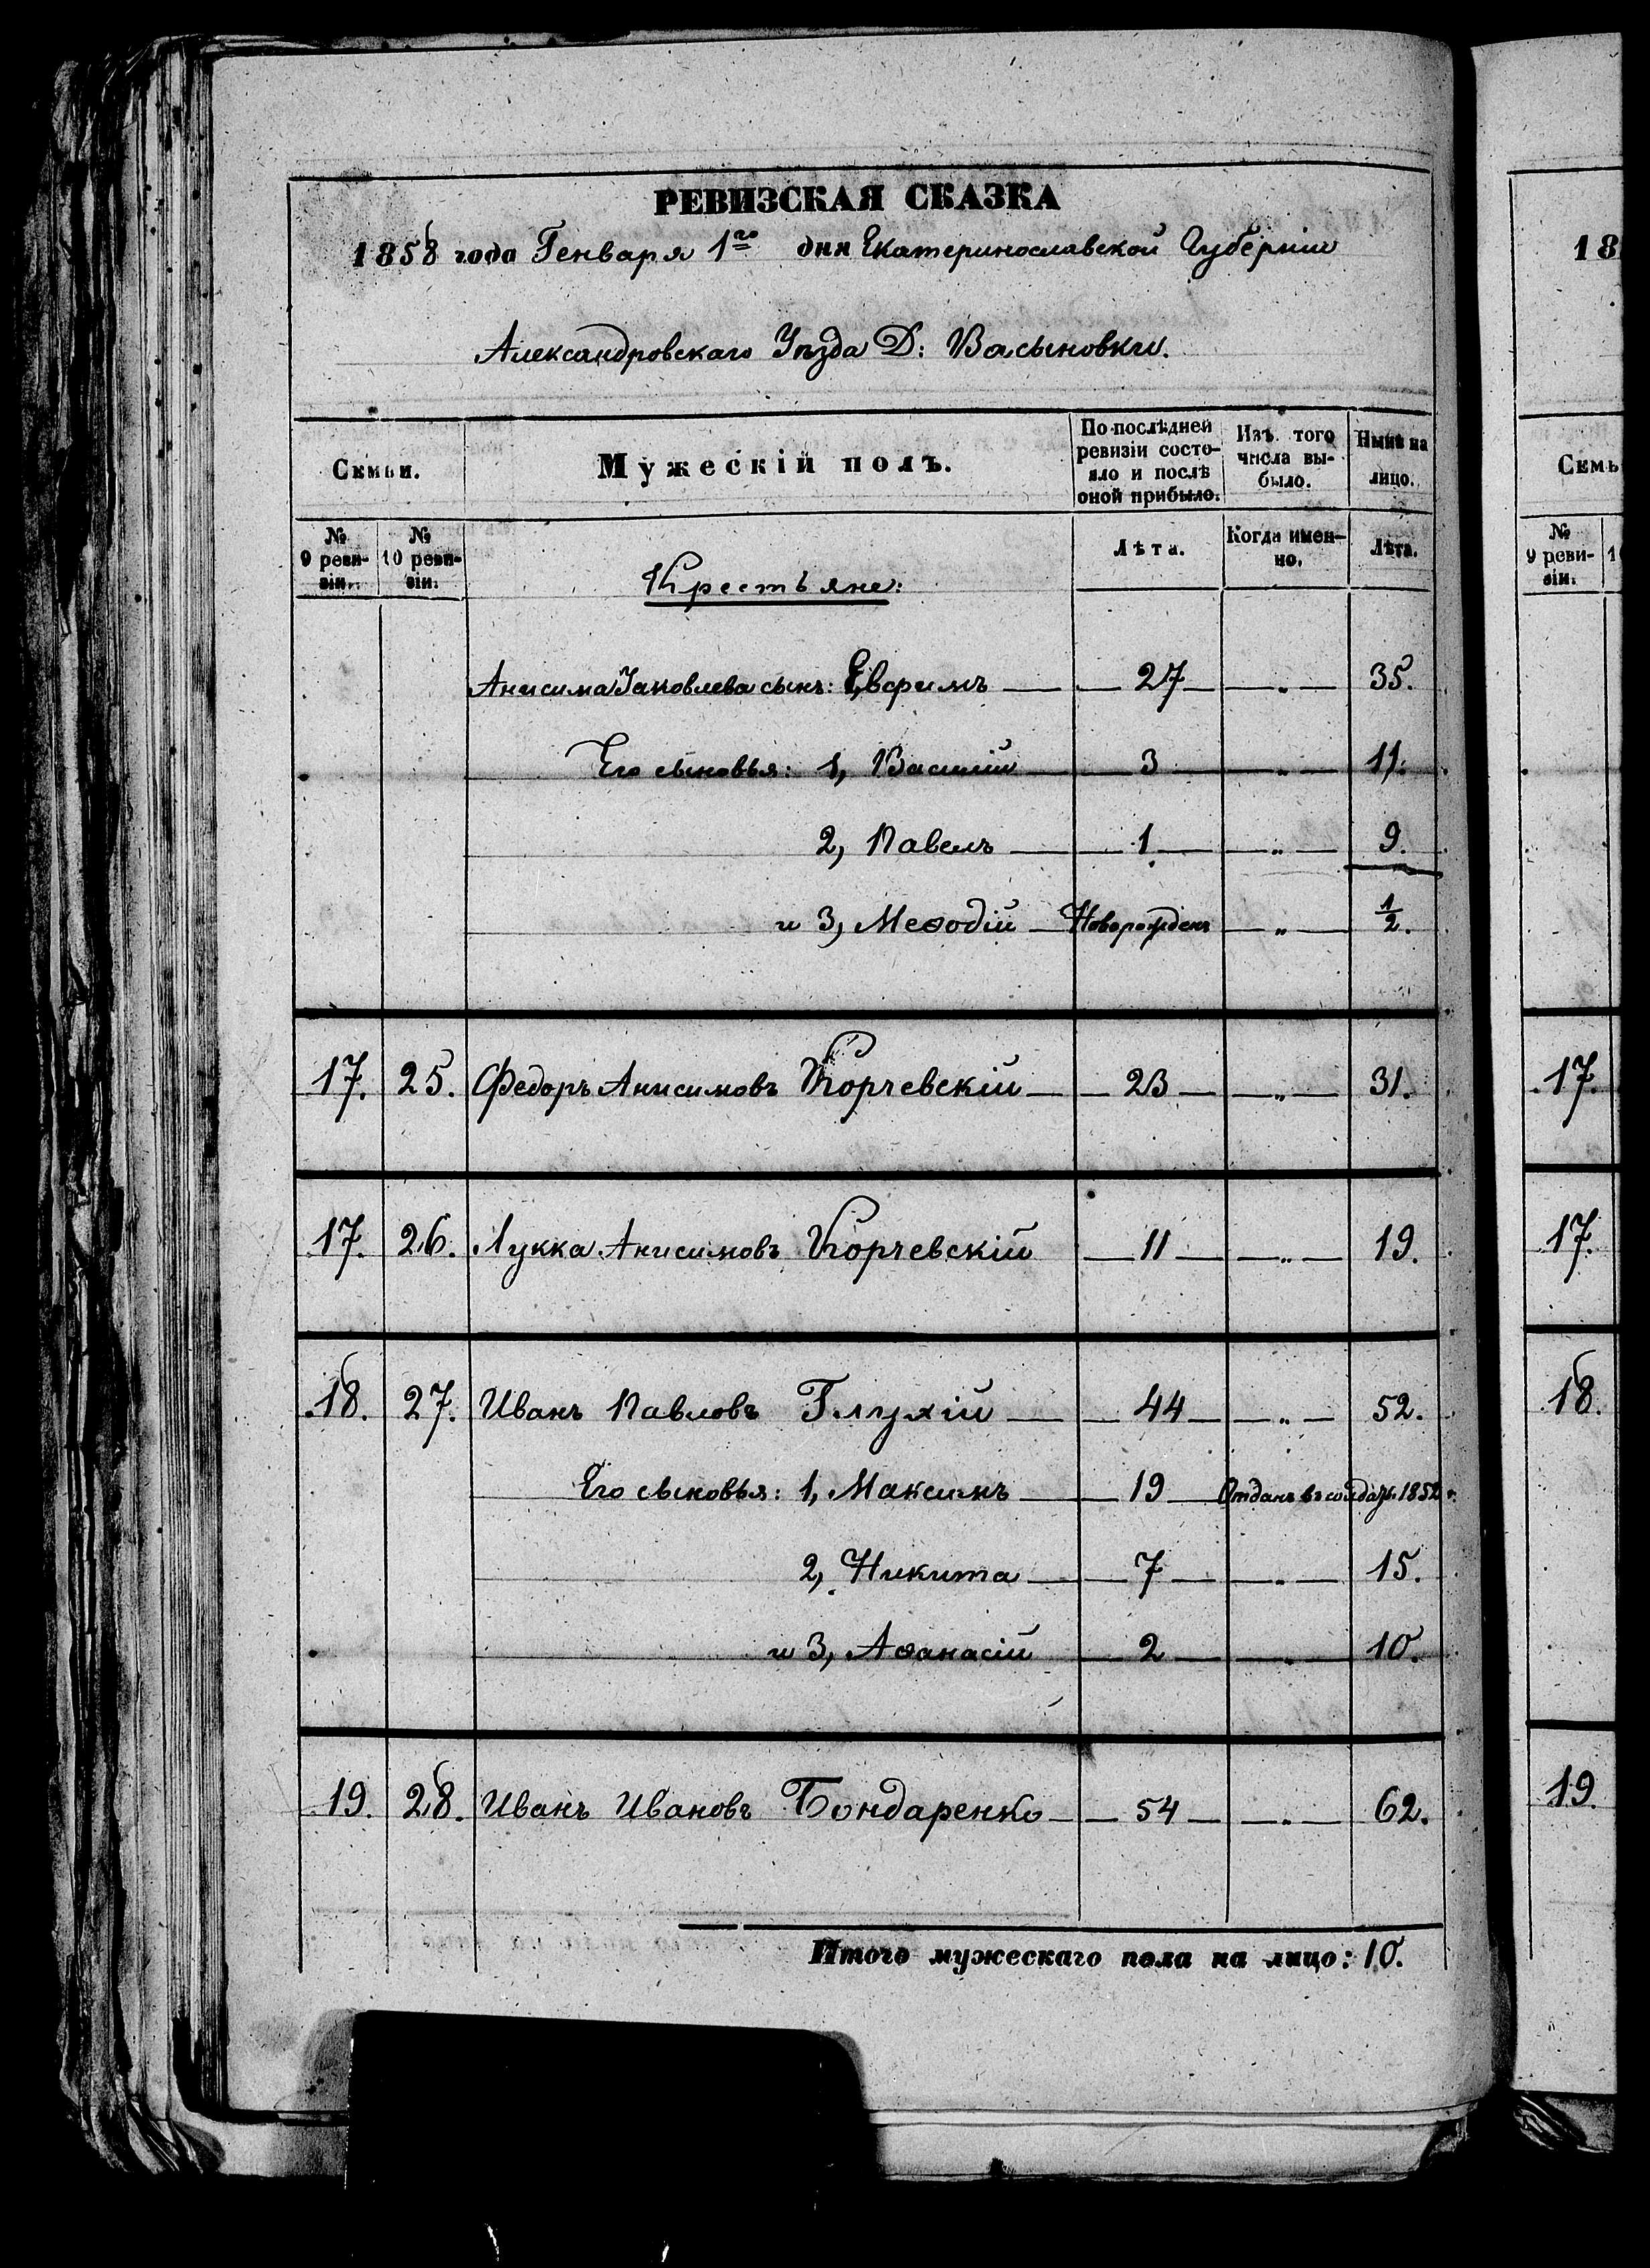 РЕВИЗСКАЯ СКАЗКА
1858 года Генваря 1го дня Екатеринославской Губерніи
Александровскаго Уѣзда Д: Васыновки.
Семьи. Мужескій полъ. По послѣдней ревизіи состояло и послѣ оной прибыло. Изъ того числа выбыло. Нынѣ на лицо.
№ 9 ревизіи. № 10 ревизіи. Лѣта. Когда именно. Лѣта.
Крестьяне:
Анисима Яковлева сынъ: Ефримъ — 27 — „ — 35.
Его сыновья: 1, Василій — 3 — „ — 11.
2, Павелъ — 1 — „ — 9.
и 3, Меѳодій — Новорожденъ — „ — 1/2.
17. 25. Федоръ Анисимовъ Корчевскій — 23 — „ — 31.
17. 26. Лукка Анисимовъ Корчевскій — 11 — „ — 19.
18. 27. Иванъ Павловъ Глухій — 44 — „ — 52.
Его сыновья: 1, Максимъ — 19 — Отданъ въ солдаты 1852 г.
2, Никита — 7 — „ — 15.
и 3, Аѳанасій — 2 — „ — 10.
19. 28. Иванъ Ивановъ Бондаренко — 54 — „ — 62.
Итого мужескаго пола на лицо: 10.
18
Семь
№ 9 ревизіи. 1
17.
17.
18.
19.